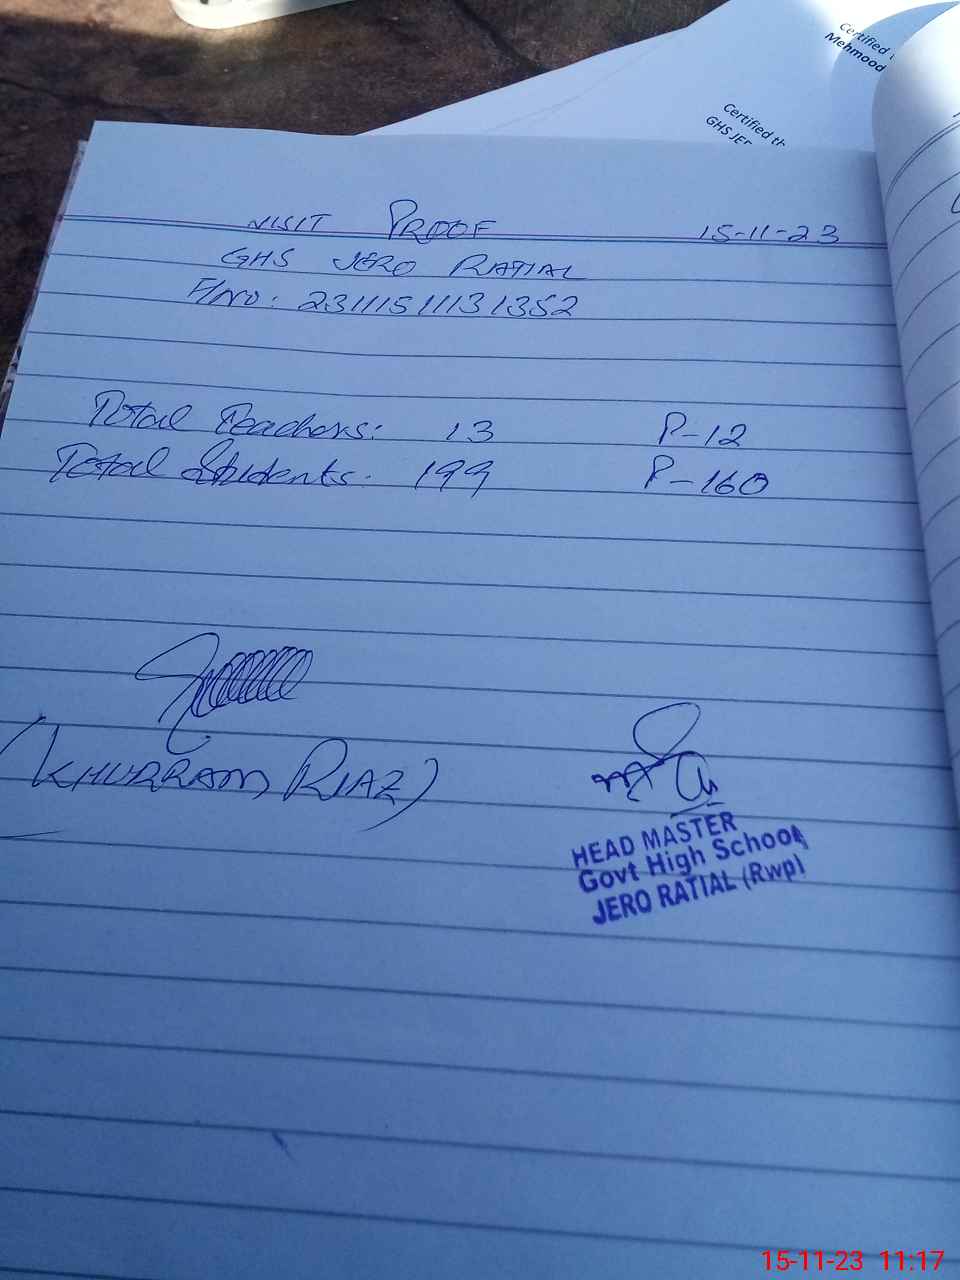 Certified t
Mehmood
Certified th
GHS JER
VISIT PROOF 15-11-23
GHS JERO RATIAL
F/No: 23111511131352
Total Teachers: 13 P-12
Total Students. 199 P-160
(KHURRAM RIAZ)
HEAD MASTER
Govt High School
JERO RATIAL (Rwp)
15-11-23 11:17